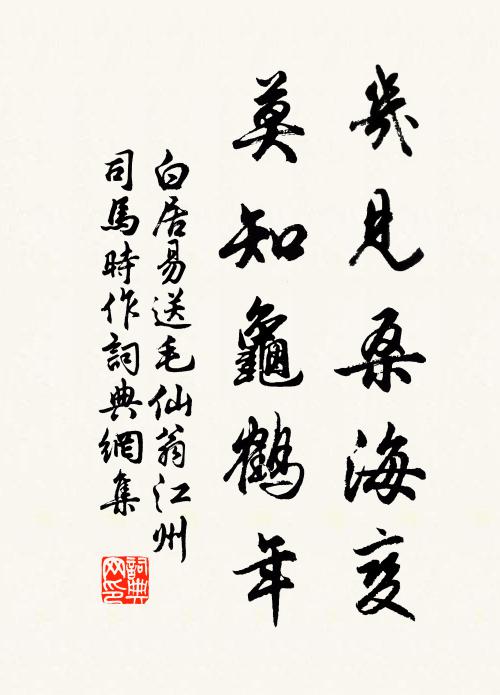 幾見桑海變
莫知龜鶴年
白居易送毛仙翁江州
司馬時作詞典網集
詞典
网印